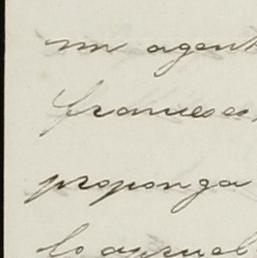 un agent
frances
proponga
lo aprueb